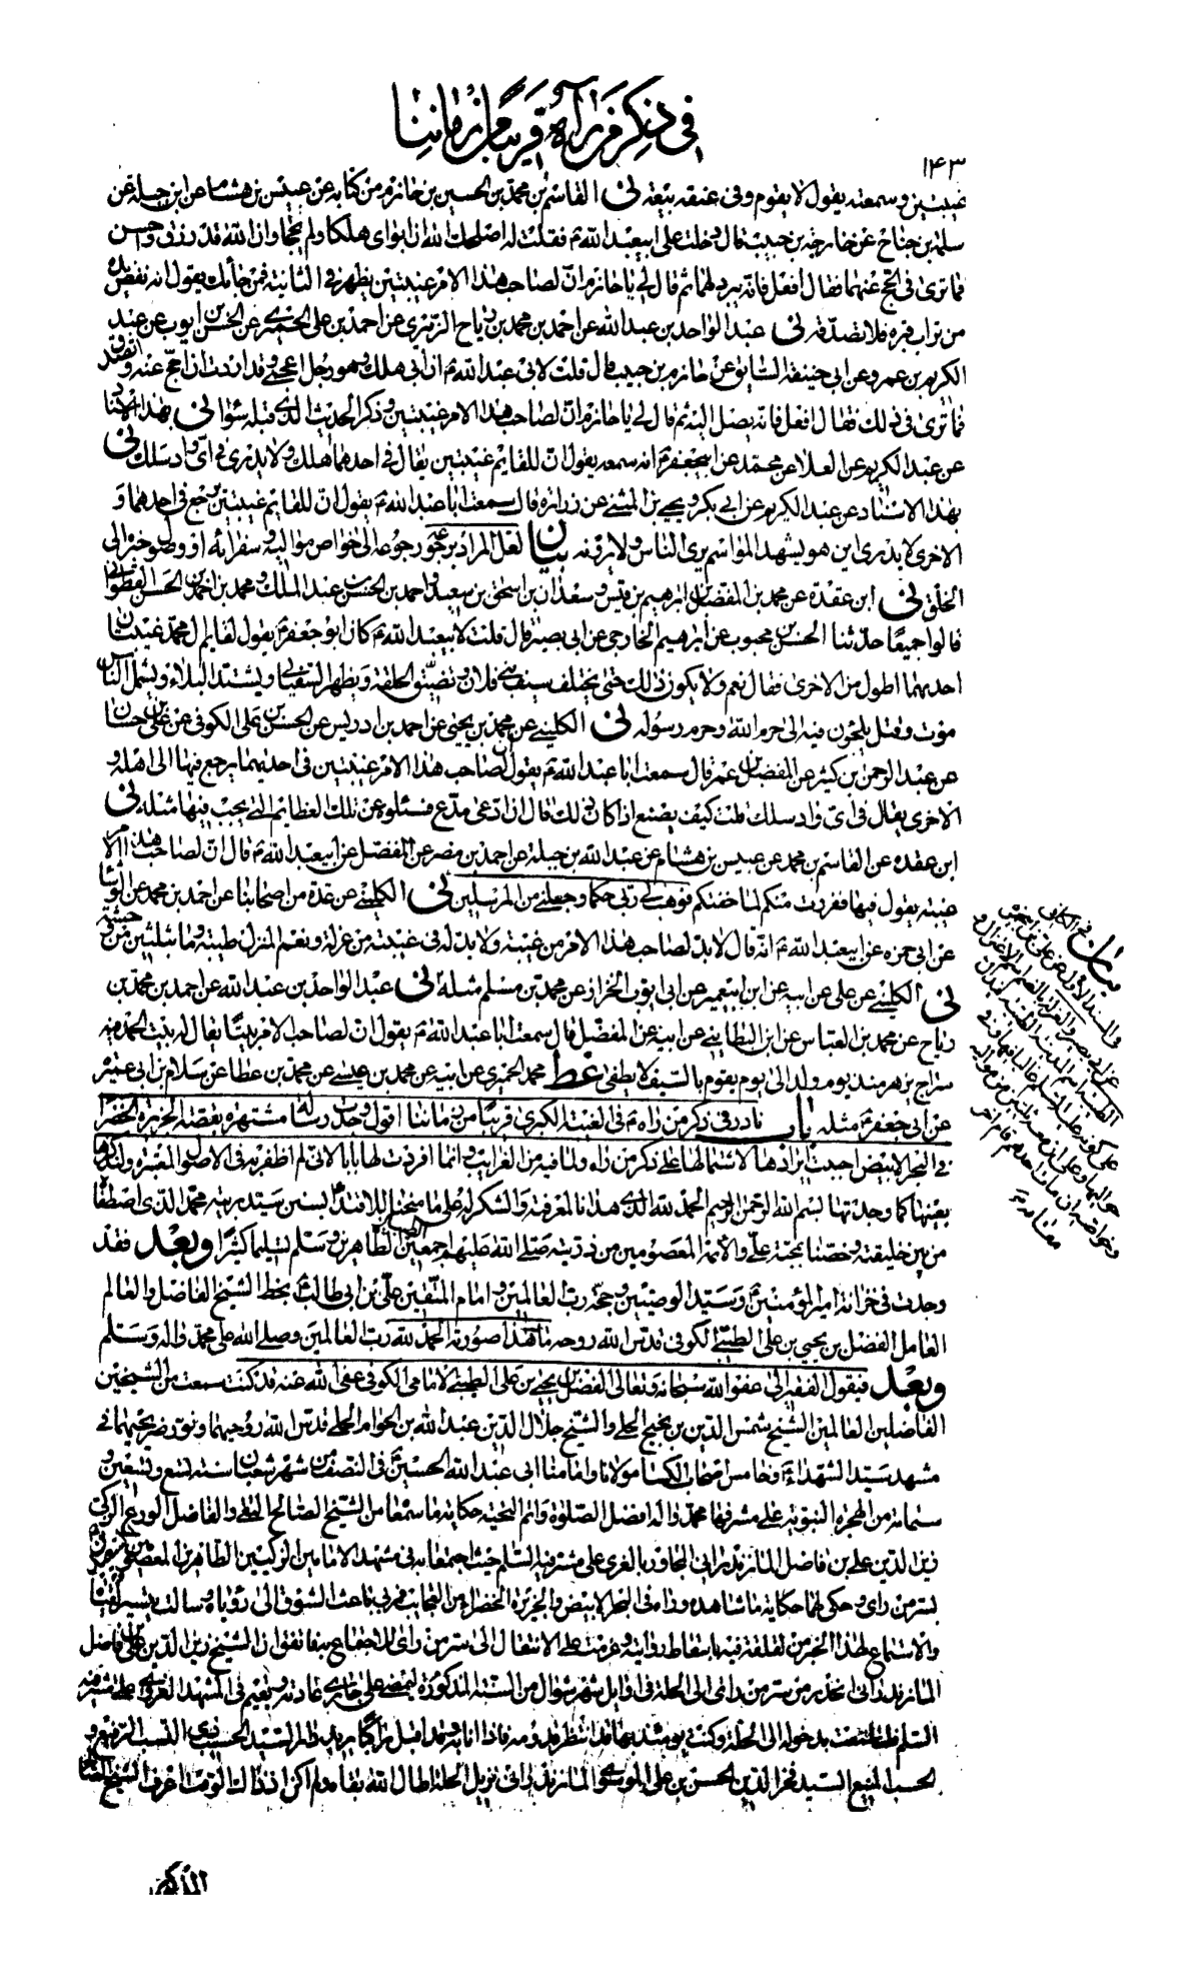 في ذكر من رآه قريبا من زماننا
١٤٣
غيبتين وسمعته يقول لا يقوم وفي عنقه بيعة نى القاسم بن محمد بن الحسين بن حازم من كتابه عن عبيس بن هشام عن ابن جبلة عن
سلمة بن جناح عن خارجة بن حبيب قال دخلت على ابيعبد الله ع فقلت له اصلحك الله ان ابواى هلكا ولم يحجا وان الله قد رزق واحسن
فما ترى في الحج عنهما فقال افعل فانه يبرد لهما ثم قال لي يا حازم ان لصاحب هذا الامر غيبتين يظهر في الثانية فمن جاءك يقول انه نفض يده
من تراب قبره فلا تصدقه نى عبد الواحد بن عبد الله عن احمد بن محمد بن رياح الزهري عن احمد بن علي الحميري عن الحسن بن ايوب عن عبد
الكريم بن عمرو عن ابي حنيفة السايق عن حازم بن حبيب قال قلت لابي عبد الله ع ان ابي هلك وهو رجل اعجمي وقد اردت ان احج عنه واتصدق
فما ترى في ذلك فقال افعل فانه يصل اليه ثم قال لي يا حازم ان لصاحب هذا الامر غيبتين وذكر الحديث الذي قبله سؤا نى بهذا الاسناد
عن عبد الكريم عن العلا عن محمد عن ابيجعفر ع انه سمعه يقول ان للقايم غيبتين يقال في احدهما هلك ولا يدرى في اى واد سلك نى
بهذا الاسناد عن عبد الكريم عن ابي بكر ويحيى بن المثنى عن زرارة قال سمعت ابا عبد الله ع يقول ان للقايم غيبتين يرجع في احدهما و
الاخرى لا يدرى اين هو يشهد المواسم يرى الناس ولا يرونه بيان لعل المراد برجوعه رجوعه الى خواص مواليه وسفرائه او وصول خبره الى
الخلق نى ابن عقدة عن محمد بن المفضل بن ابرهيم بن قيس وسعدان بن اسحق بن سعيد واحمد بن الحسين بن عبد الملك ومحمد بن احمد بن الحسن القطواني
قالوا جميعا حدثنا الحسن بن محبوب عن ابرهيم الخارجي عن ابي بصير قال قلت لابيعبد الله ع كان ابو جعفر ع يقول لقايم ال محمد غيبتان
احديهما اطول من الاخرى فقال نعم ولا يكون ذلك حتى يختلف سيف بني فلان وتضيق الحلقة ويظهر السفياني ويشتد البلاء ويشمل الناس
موت وقتل يلجون فيه الى حرم الله وحرم رسوله نى الكليني عن محمد بن يحيى عن احمد بن ادريس عن الحسن بن علي الكوفي عن علي بن حسان
عن عبد الرحمن بن كثير عن المفضل بن عمر قال سمعت ابا عبد الله ع يقول لصاحب هذا الامر غيبتين في احديهما يرجع فيها الى اهله و
الاخرى يقال في اى واد سلك قلت كيف يصنع اذا كان ذلك قال ان ادعى مدع فسئلوه عن تلك العظايم التي يجيب فيها مثله نى
ابن عقدة عن القاسم بن محمد عن عبيس بن هشام عن عبد الله بن جبلة عن احمد بن مضر عن المفضل عن ابيعبد الله ع قال ان لصاحب هذا الامر
غيبة يقول فيها ففررت منكم لما خفتكم فوهب لي ربي حكما وجعلني من المرسلين نى الكليني عن عدة من اصحابنا عن احمد بن محمد عن الوشا
عن ابي حمزة عن ابيعبد الله ع انه قال لا بد لصاحب هذا الامر من غيبة ولا بد له في غيبته من عزلة ونعم المنزل طيبة وما بثلثين من وحشة
نى الكليني عن علي عن ابيه عن ابن ابيعمير عن ابي ايوب الخزاز عن محمد بن مسلم مثله نى عبد الواحد بن عبد الله عن احمد بن محمد بن
رياح عن محمد بن العباس عن ابن البطايني عن ابيه عن المفضل قال سمعت ابا عبد الله ع يقول ان لصاحب الامر بيتا يقال له بيت الحمد فيه
سراج يزهر منذ يوم ولد الى يوم يقوم بالسيف لا يطفى غط محمد الحميري عن ابيه عن محمد بن عيسى عن محمد بن عطا عن سلام بن ابي عميرة
عن ابي جعفر ع مثله باب نادر في ذكر من راه ع في الغيبة الكبرى قريبا من زماننا اقول وجدت رسالة مشتهرة بقصة الجزيرة الخضراء
في البحر الابيض احببت ايرادها لاشتمالها على ذكر من راه ولما فيه من الغرايب وانما افردت لها بابا لاني لم اظفر به في الاصول المعتبرة ولنذكرها
بعينها كما وجدتها بسم الله الرحمن الرحيم الحمد لله الذي هدانا لمعرفته والشكر له على ما منحنا للاقتداء بسنن سيد بريته محمد الذي اصطفاه
من بين خليقته وخصنا بمحبة علي والائمة المعصومين من ذريته صلى الله عليهم اجمعين الطيبين الطاهرين وسلم تسليما كثيرا وبعد فقد
وجدت في خزانة امير المؤمنين ع وسيد الوصيين وحجة رب العالمين وامام المتقين علي بن ابي طالب ع بخط الشيخ الفاضل والعالم
العامل الفضل بن يحيى بن علي الطيبي الكوفي قدس الله روحه ما هذا صورته الحمد لله رب العالمين وصلى الله على محمد واله وسلم
وبعد فيقول الفقير الى عفو الله سبحانه وتعالى الفضل بن يحيى بن علي الطيبي الامامي الكوفي عفى الله عنه قد كنت سمعت من الشيخين
الفاضلين العالمين الشيخ شمس الدين بن نجيح الحلي والشيخ جلال الدين عبد الله بن الحوام الحلي قدس الله روحيهما ونور ضريحيهما في
مشهد سيد الشهداء ع وخامس اصحاب الكسا مولانا وامامنا ابي عبد الله الحسين ع في النصف من شهر شعبان سنة تسع وتسعين و
ستمائة من الهجرة النبوية على مشرفها محمد واله افضل الصلوة واتم التحية حكاية ما سمعا من الشيخ الصالح التقي والفاضل الورع الزكي
زين الدين علي بن فاضل المازندراني المجاور بالغري على مشرفيه السلم حيث اجتمعا به في مشهد الامامين الزكيين الطاهرين المعصومين
بسر من راى وحكى لهما حكاية ما شاهده وراه في البحر الابيض والجزيرة الخضراء من العجايب فمر بي باعث الشوق الى رؤياه وسالت تيسير لقياه
والاستماع لهذا الخبر من لقلقة فيه باسقاط رواته وعزمت على الانتقال الى سر من راى للاجتماع به فاتفق ان الشيخ زين الدين علي بن فاضل
المازندراني انحدر من سر من راى الى الحلة في اوايل شهر شوال من السنة المذكورة ليمضي على جاري عادته ويقيم في المشهد الغروي على مشرفه
السلم فلما سمعت بدخوله الى الحلة وكنت يومئذ بها قد انتظر قدومه فاذا انا به وقد اقبل راكبا يريد دار السيد الحسيب ذي النسب الرفيع و
الحسب المنيع السيد فخر الدين الحسن بن علي الموسوي المازندراني نزيل الحلة اطال الله بقاه ولم اكن اذ ذاك الوقت اعرف الشيخ الصالح
المذكور
بيان في الكافي